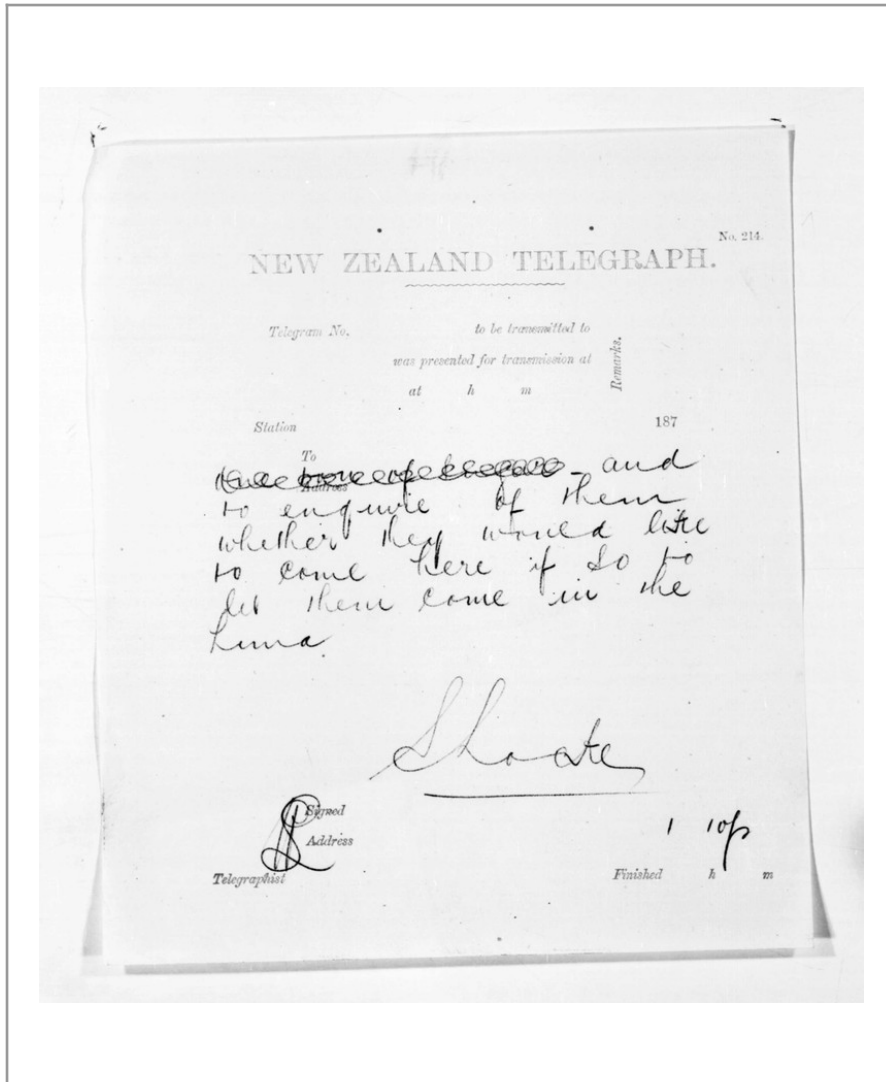 No. 214.
NEW ZEALAND TELEGRAPH.
Telegram No. to be transmitted to
was presented for transmission at
Remarks.
at h m
Station 187
To
Address
and
to enquire of them
whether they would like
to come here if so to
let them come in the
Luna
S Locke
Signed
Address
1 10p
Telegraphist
Finished h m